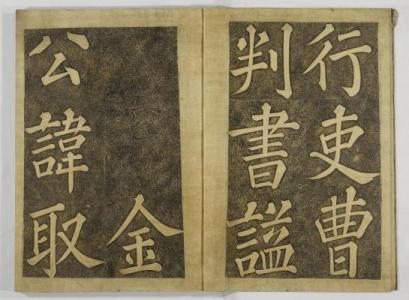 行吏曹
判書謚
金
公諱取